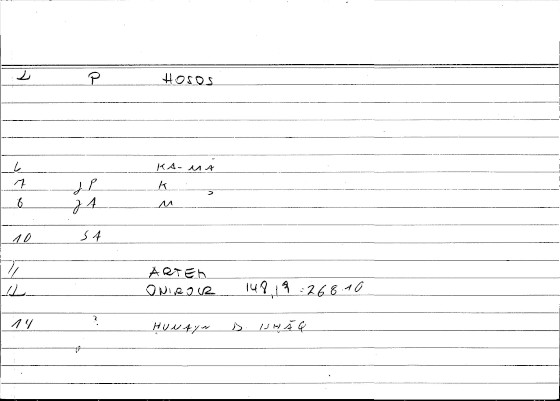 1 P HOSOS
6 KA-MĀ
7 JP K
8 JA M
10 SA
11 ARTEM
12 ONIROCR 148,19 : 268.10
14 ? ḤUNAYN B ISḤĀQ